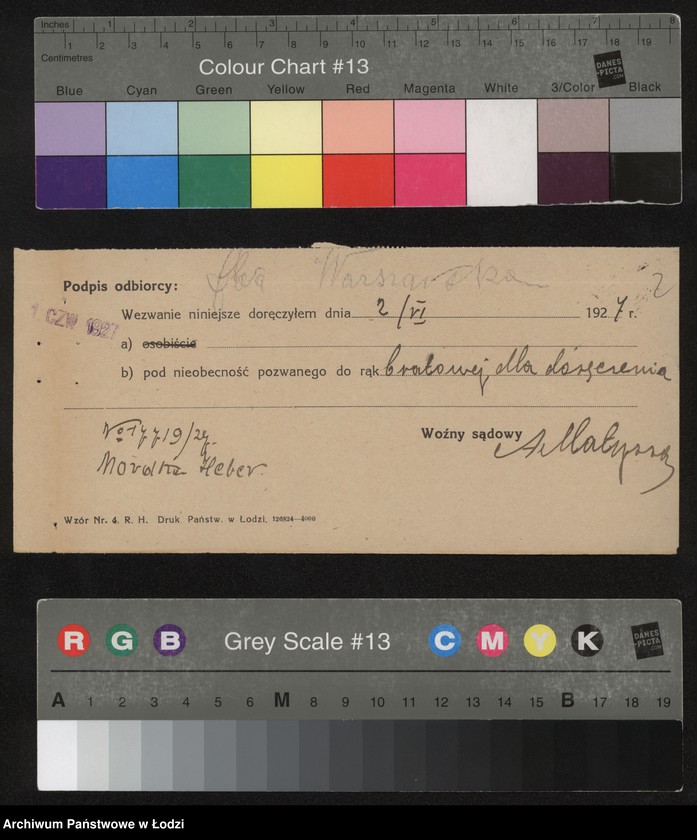 Inches 1 2 3 4 5 6 7 8
1 2 3 4 5 6 7 8 9 10 11 12 13 14 15 16 17 18 19
Centimetres
Colour Chart #13
DANES
-PICTA
.COM
Blue Cyan Green Yellow Red Magenta White 3/Color Black
Podpis odbiorcy: Warszawska
Wezwanie niniejsze doręczyłem dnia 2/VI 1927 r.
1 CZW 1927
a) osobiście
b) pod nieobecność pozwanego do rąk bratowej dla doręczenia
Woźny sądowy
Mordka Heber
Wzór Nr. 4. R. H. Druk. Państw. w Łodzi, 126824—4000
R G B Grey Scale #13 C M Y K
DANES
-PICTA
.COM
A 1 2 3 4 5 6 M 8 9 10 11 12 13 14 15 B 17 18 19
Archiwum Państwowe w Łodzi